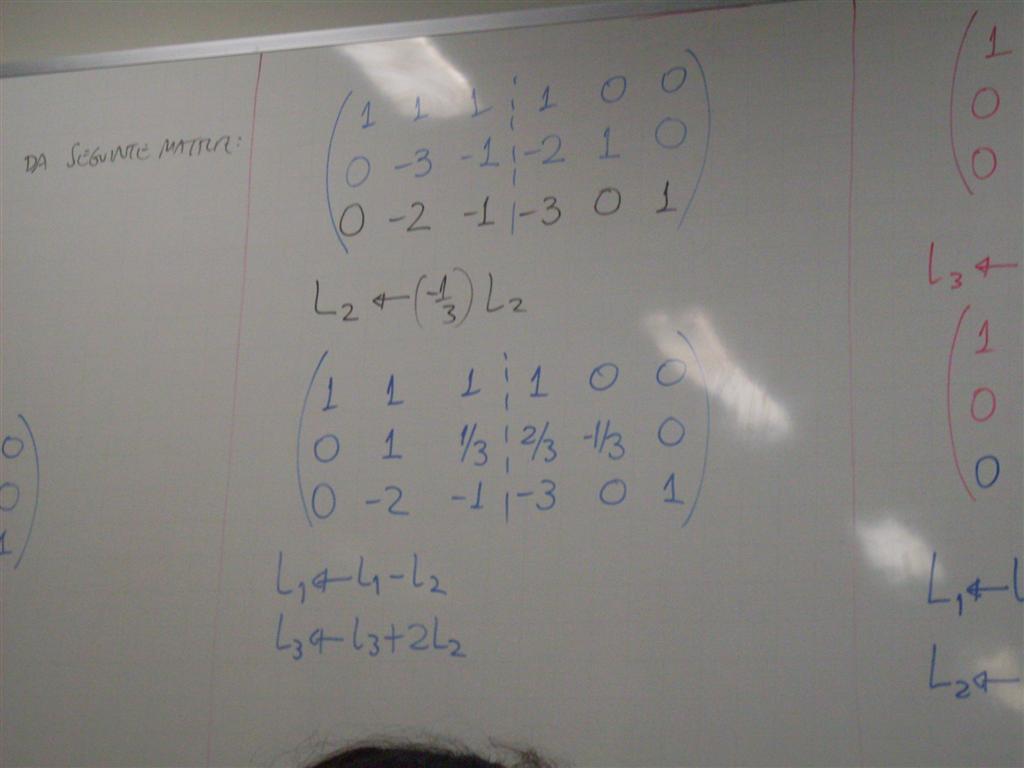 DA SEGUINTE MATRIZ:
0
0
1
1 1 1 1 0 0
0 -3 -1 -2 1 0
0 -2 -1 -3 0 1
L2 ← (-1/3) L2
1 1 1 1 0 0
0 1 1/3 2/3 -1/3 0
0 -2 -1 -3 0 1
L1 ← L1 - L2
L3 ← L3 + 2L2
1
0
0
L3 ←
1
0
0
L1 ← L
L2 ←